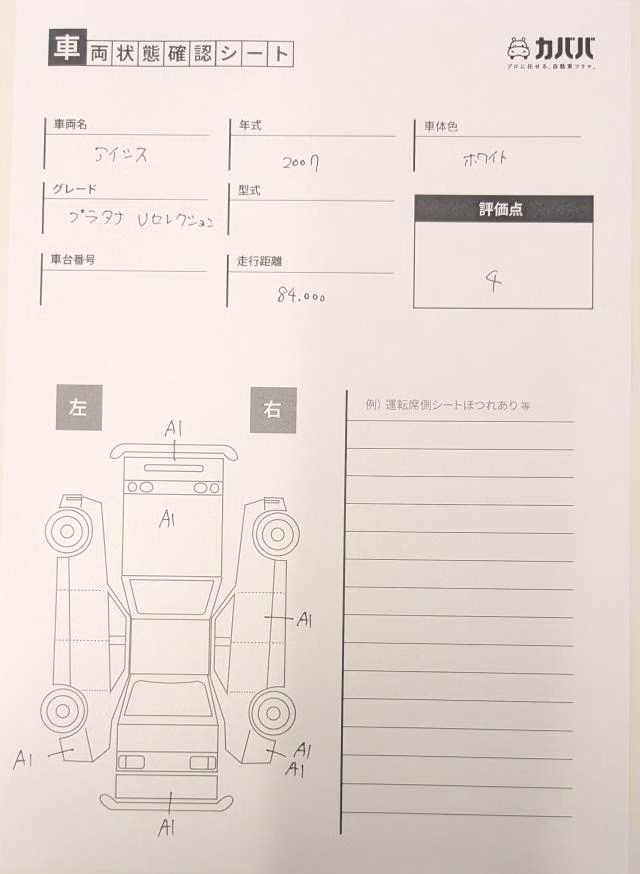 車両状態確認シート
カババ
プロに任せる、自動車フリマ。
車両名
アイシス
年式
2007
車体色
ホワイト
グレード
プラタナ Uセレクション
型式
評価点
4
車台番号
走行距離
84.000
左
右
例）運転席側シートほつれあり 等
A1
A1
A1
A1
A1
A1
A1